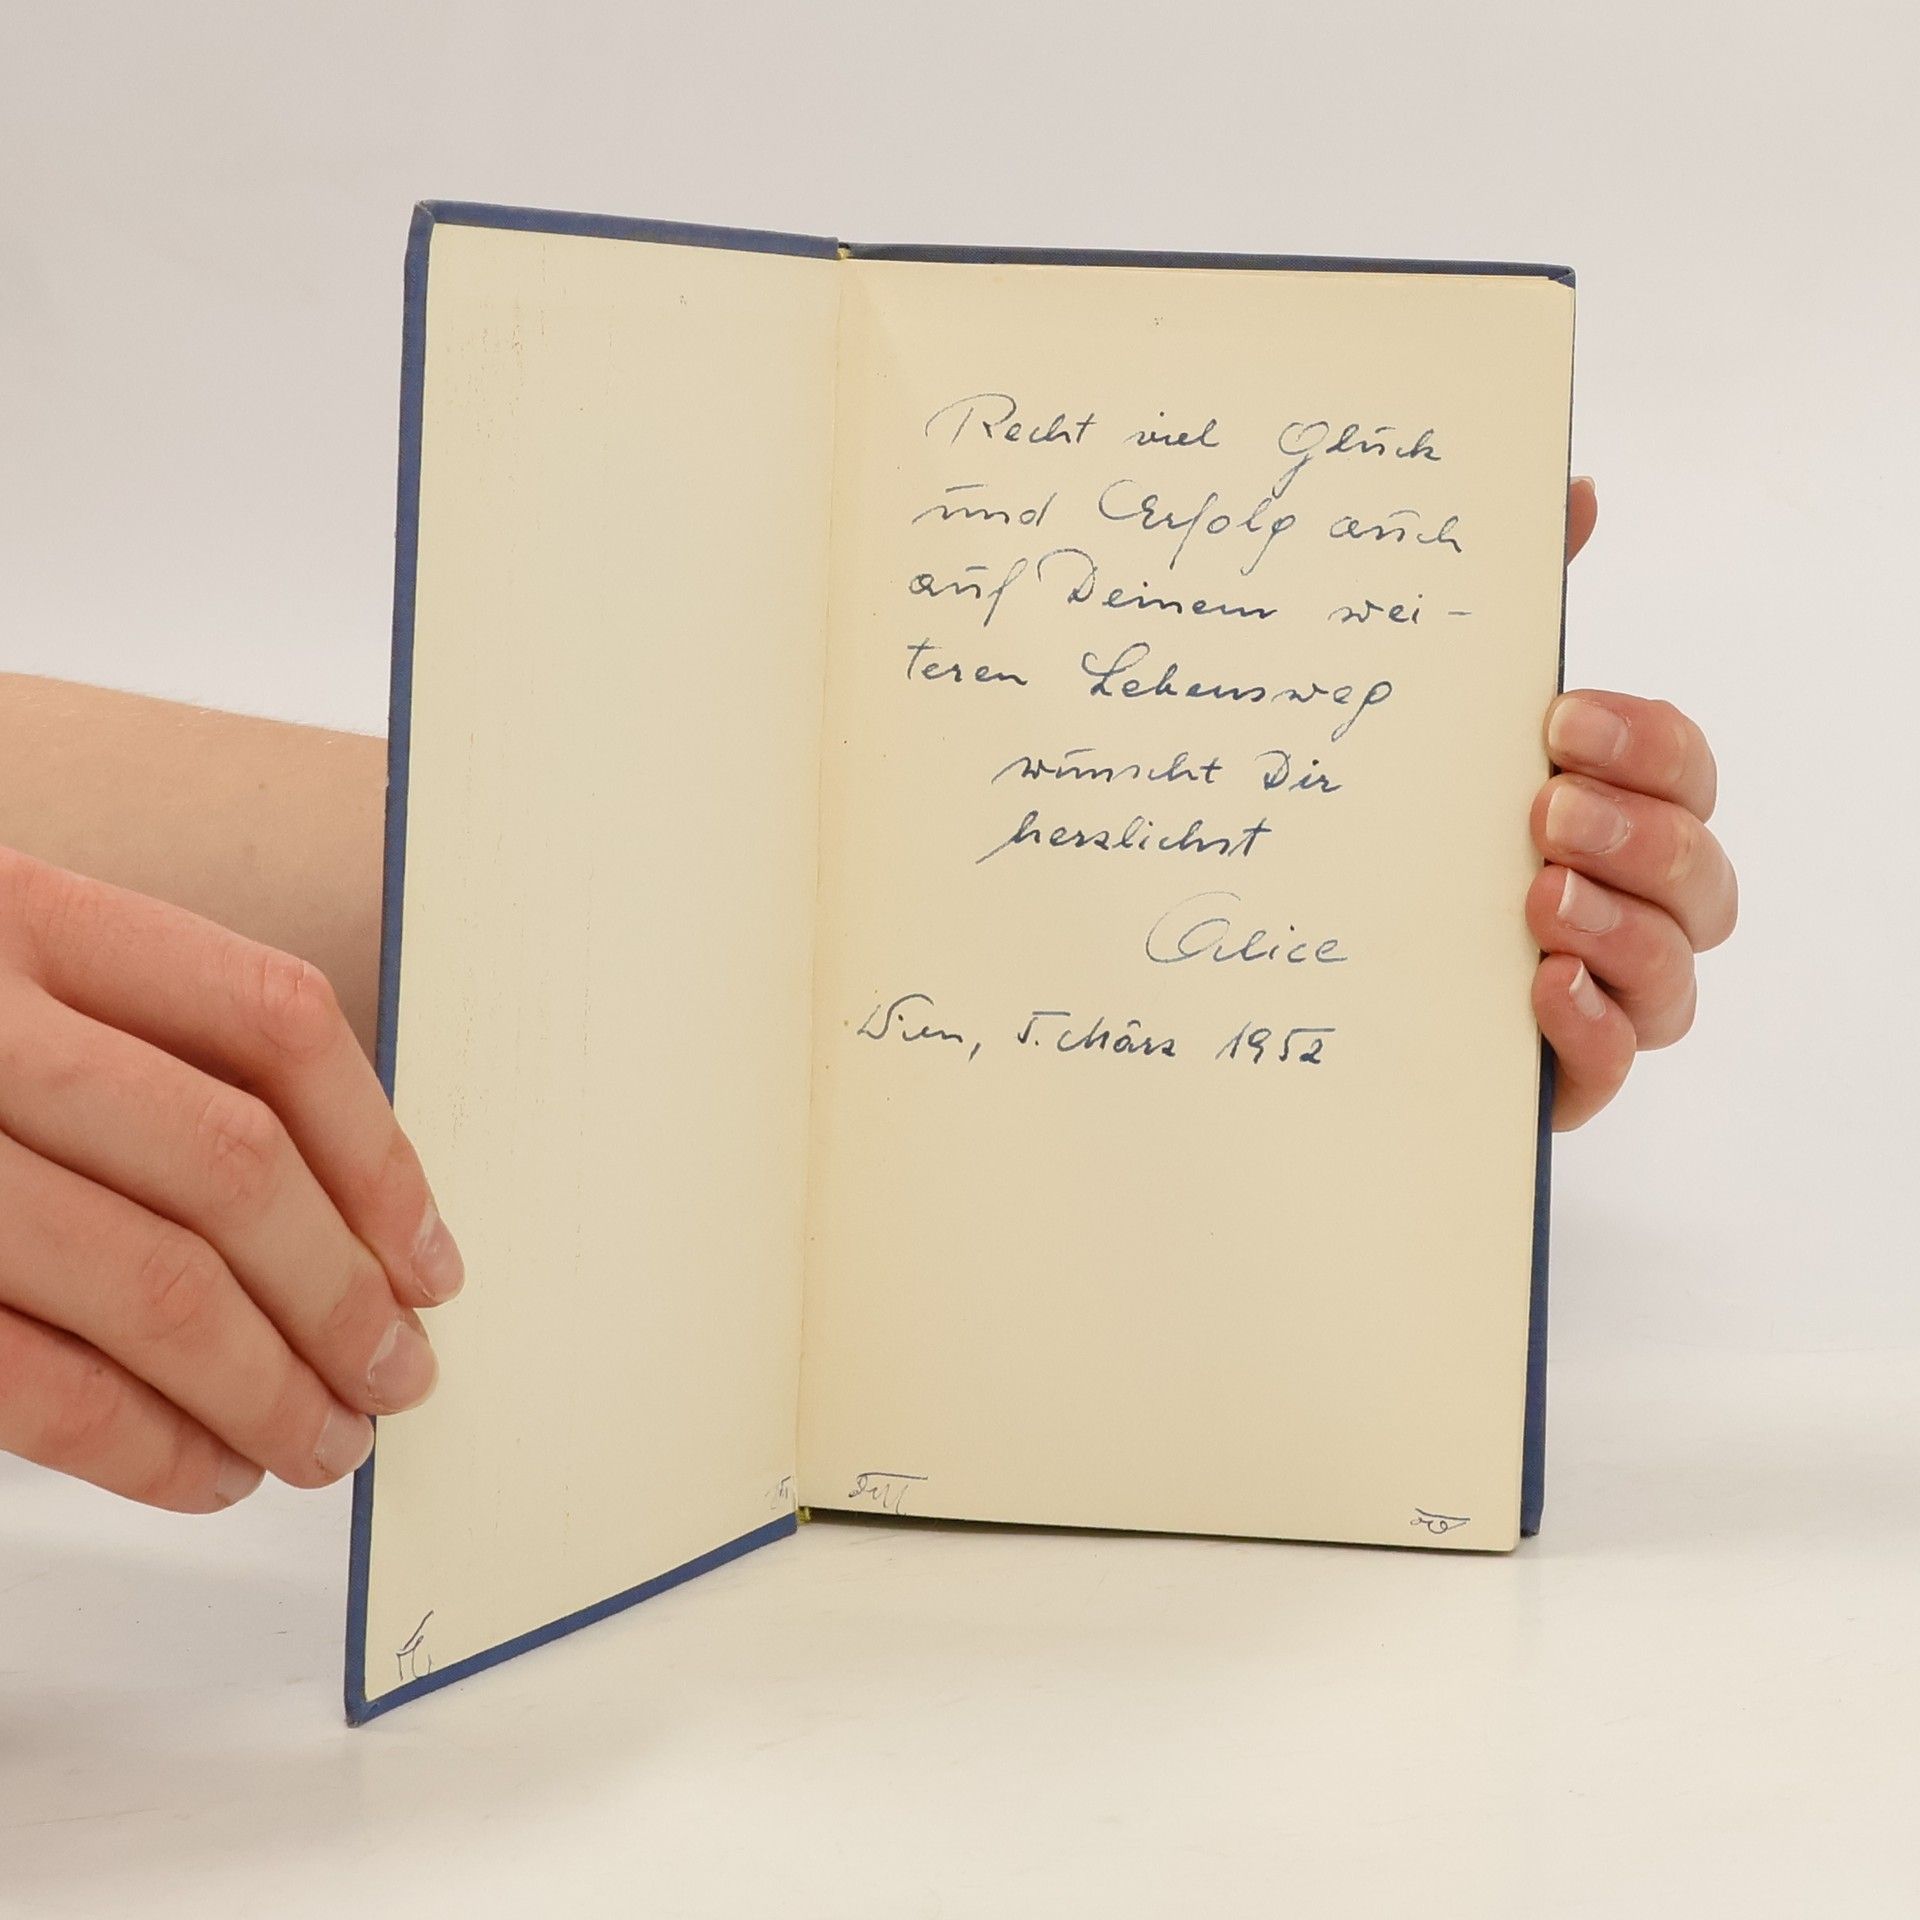 Recht viel Glück
und Erfolg auch
auf Deinem wei-
teren Lebensweg
wünscht Dir
herzlichst
Alice
Wien, 5. März 1952